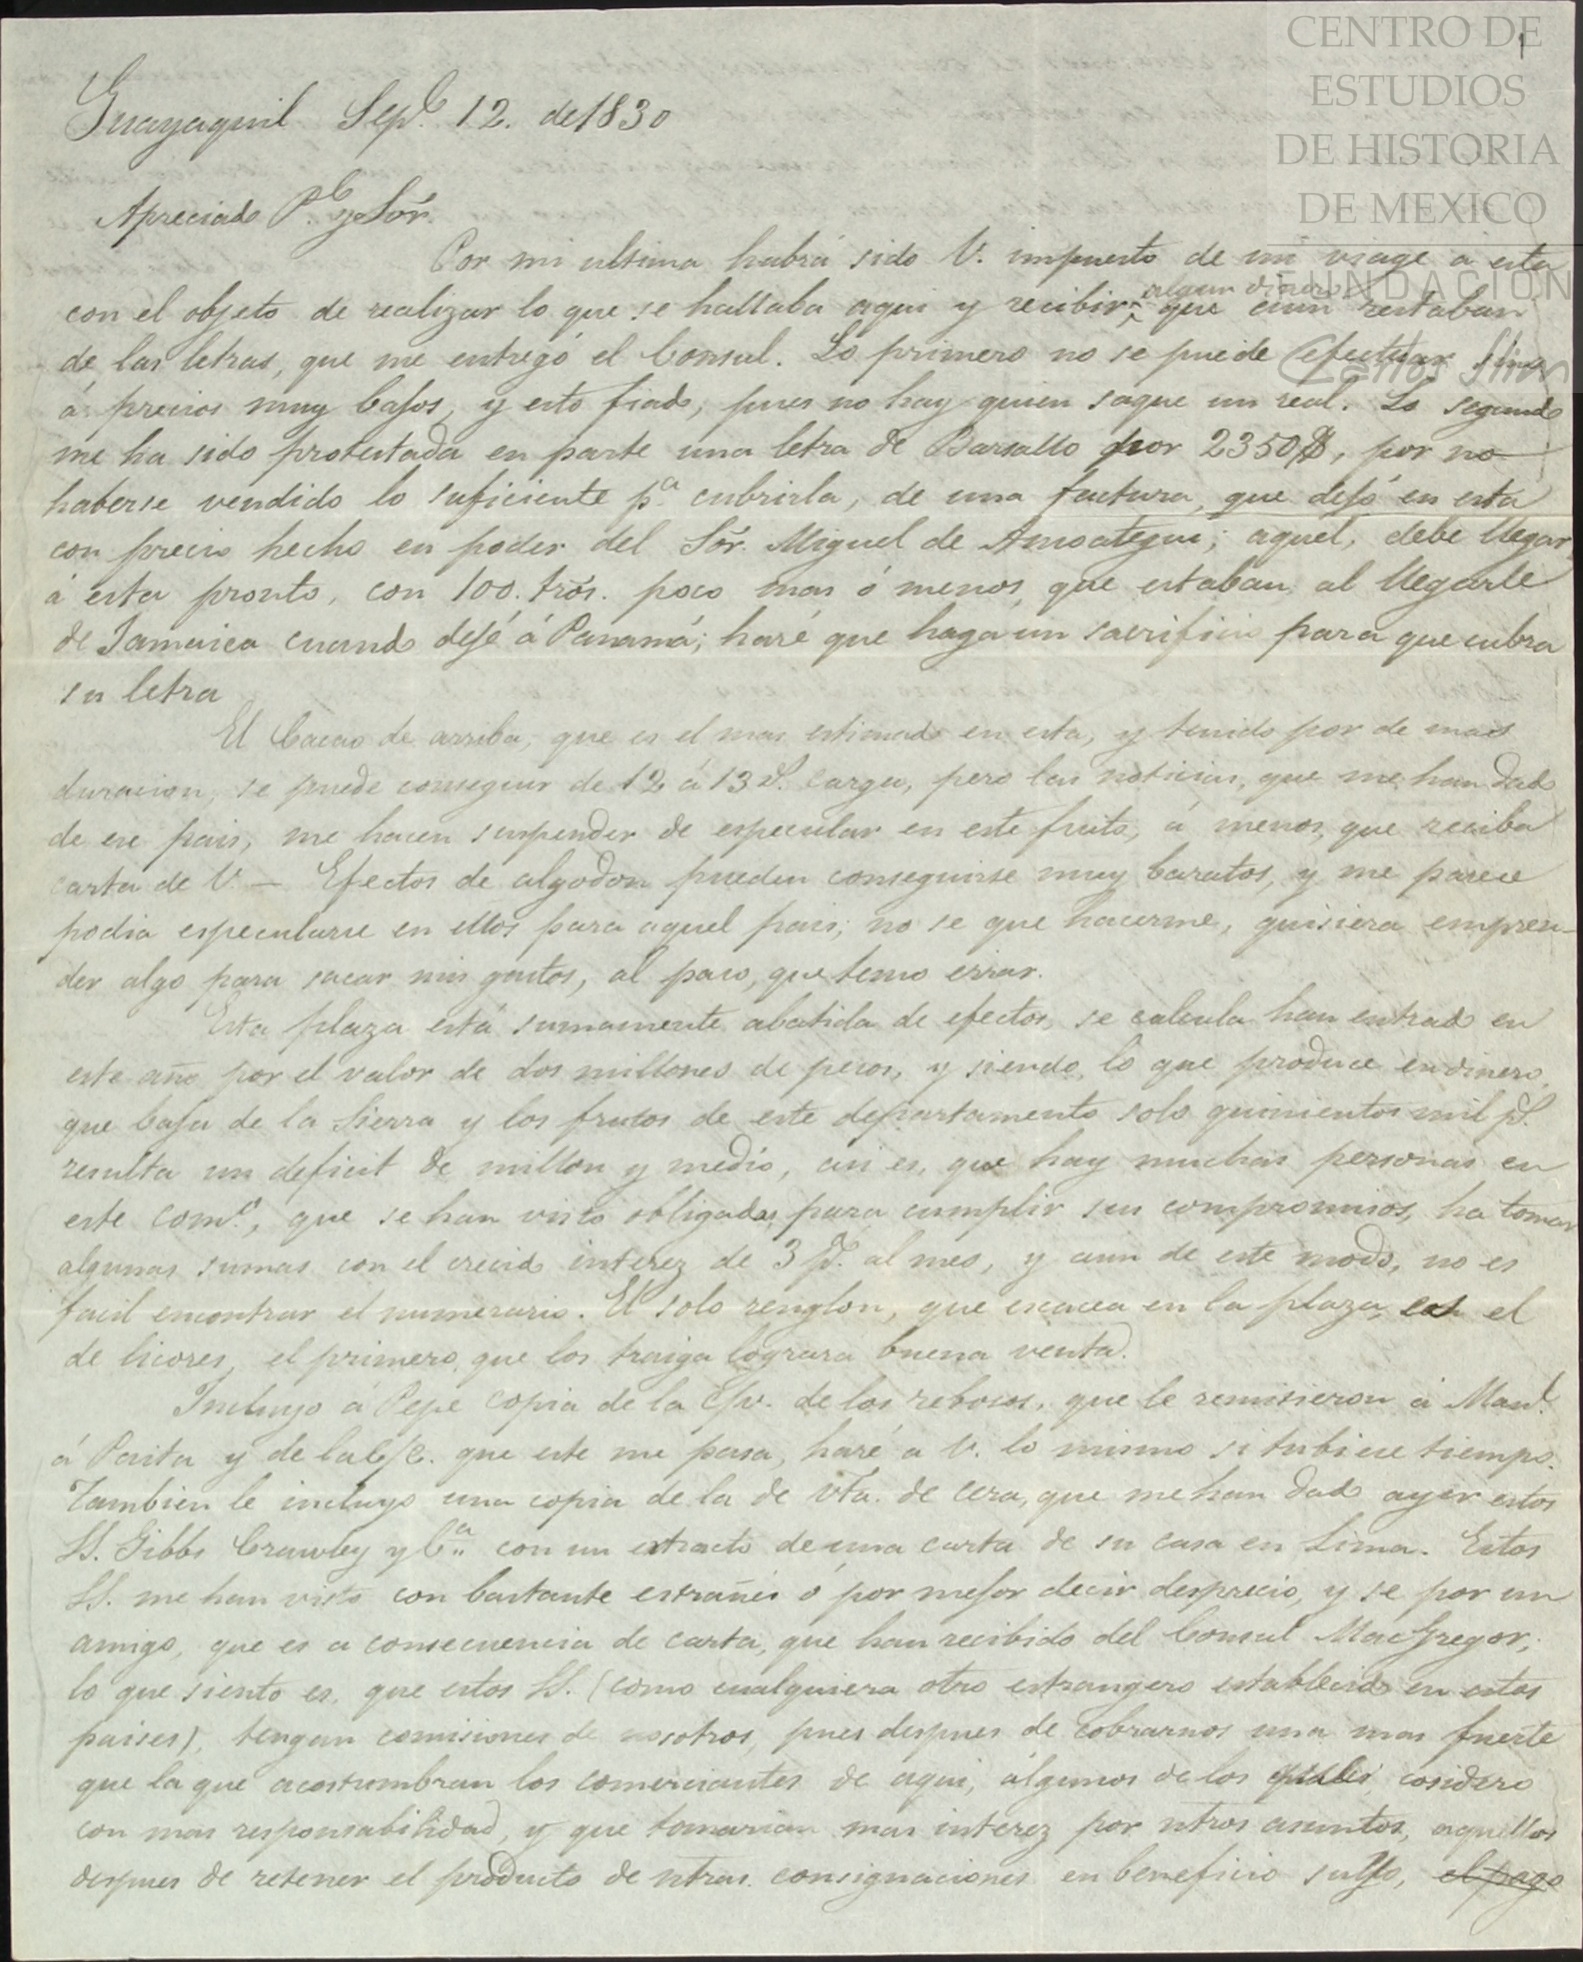 CENTRO DE
ESTUDIOS
DE HISTORIA
DE MEXICO
FUNDACIÓN
Carlos Slim
1
Guayaquil Sepe. 12. de 1830
Apreciado Pe. y Sór.
Por mi ultima habrá sido V. impuesto de mi viage á esta
con el objeto de realizar lo que se hallaba aqui y recibir, algun dinero que aun restaban
de las letras, que me entregó el Consul. Lo primero no se puede efectuar sino
á precios muy bajos, y esto fiado, pues no hay quien saque un real. Lo segundo
me ha sido protestada en parte una letra de Barsallo por 2350$, por no
haberse vendido lo suficiente pa cubrirla, de una factura, que dejó en esta
con precio hecho en poder del Sór. Miguel de Amoategui; aquel, debe llegar
á esta pronto, con 100. trós. poco mas ó menos, que estaban al llegarle
de Jamaica cuando dejé á Panamá; haré que haga un sacrificio para que cubra
su letra
El Cacao de arriba, que es el mas estimado en esta, y tenido por de mas
duracion, se puede conseguir de 12 á 13 ps. carga, pero las noticias, que me han dado
de ese pais, me hacen suspender de especular en este fruto, á menos, que reciba
carta de V. — Efectos de algodon pueden conseguirse muy baratos, y me parece
podia especularse en ellos para aquel pais; no se que hacerme, quisiera empren-
der algo para sacar mis gastos, al paso, que temo errar.
Esta plaza está sumamente abatida de efectos, se calcula han entrado en
este año por el valor de dos millones de pesos, y siendo, lo que produce en dinero,
que baja de la Sierra y los frutos de este departamento solo quinientos mil ps.
resulta un deficit de millon y medio, asi es, que hay muchas personas en
este como., que se han visto obligadas, para cumplir sus compromisos, ha tomar
algunas sumas con el crecido interez de 3 p%. al mes, y aun de este modo, no es
facil encontrar el numerario. El solo renglon, que escacea en la plaza, es el
de licores, el primero, que los traiga lograra buena venta.
Incluyo á Pepe copia de la C/v. de los rebosos, que le remisieron á Manl.
á Paita y de la C/C. que este me pasa, haré a V. lo mismo si tubiese tiempo.
Tambien le incluyo una copia de la de vta. de cera, que me han dado ayer estos
SS. Gibbs Crawley y Ca. con un estracto de una carta de su casa en Lima. Estos
SS. me han visto con bastante estrañes ó por mejor decir desprecio, y se por un
amigo, que es a consecuencia de carta, que han recibido del Consul MacGregor;
lo que siento es, que estos SS. (como cualquiera otro estrangero establecido en estos
paises), tengan comisiones de nosotros, pues despues de cobrarnos una mas fuerte
que la que acostumbran los comerciantes de aqui, álgunos de los quales, cosidero
con mas responsabilidad, y que tomarian mas interez por ntros asuntos, aquellos
despues de retener el producto de ntras. consignaciones en beneficio suyo, el pago